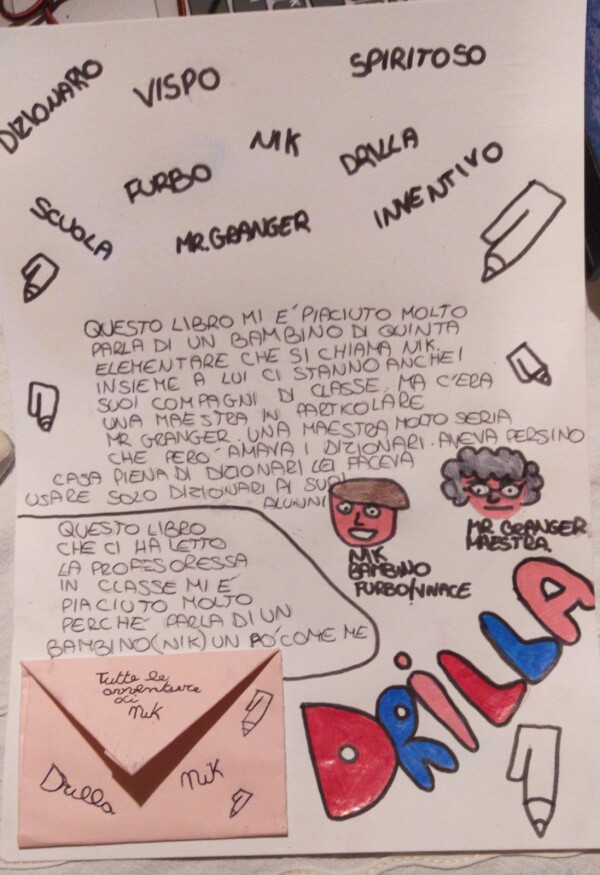 DIZIONARIO
VISPO
SPIRITOSO
NIK
DRILLA
FURBO
INVENTIVO
SCUOLA
MR. GRANGER
QUESTO LIBRO MI E' PIACIUTO MOLTO
PARLA DI UN BAMBINO DI QUINTA
ELEMENTARE CHE SI CHIAMA NIK.
INSIEME A LUI CI STANNO ANCHE I
SUOI COMPAGNI DI CLASSE. MA C'ERA
UNA MAESTRA IN PARTICOLARE
MR GRANGER. UNA MAESTRA MOLTO SERIA
CHE PERO' AMAVA I DIZIONARI. AVEVA PERSINO
CASA PIENA DI DIZIONARI LEI FACEVA
USARE SOLO DIZIONARI AI SUOI
ALUNNI
NIK
BAMBINO
FURBO/VIVACE
MR GRANGER
MAESTRA
QUESTO LIBRO
CHE CI HA LETTO
LA PROFESORESSA
IN CLASSE MI E'
PIACIUTO MOLTO
PERCHE' PARLA DI UN
BAMBINO (NIK) UN PO' COME ME
DRiLLA
Tutte le
avventure
di
Nik
Drilla
NiK